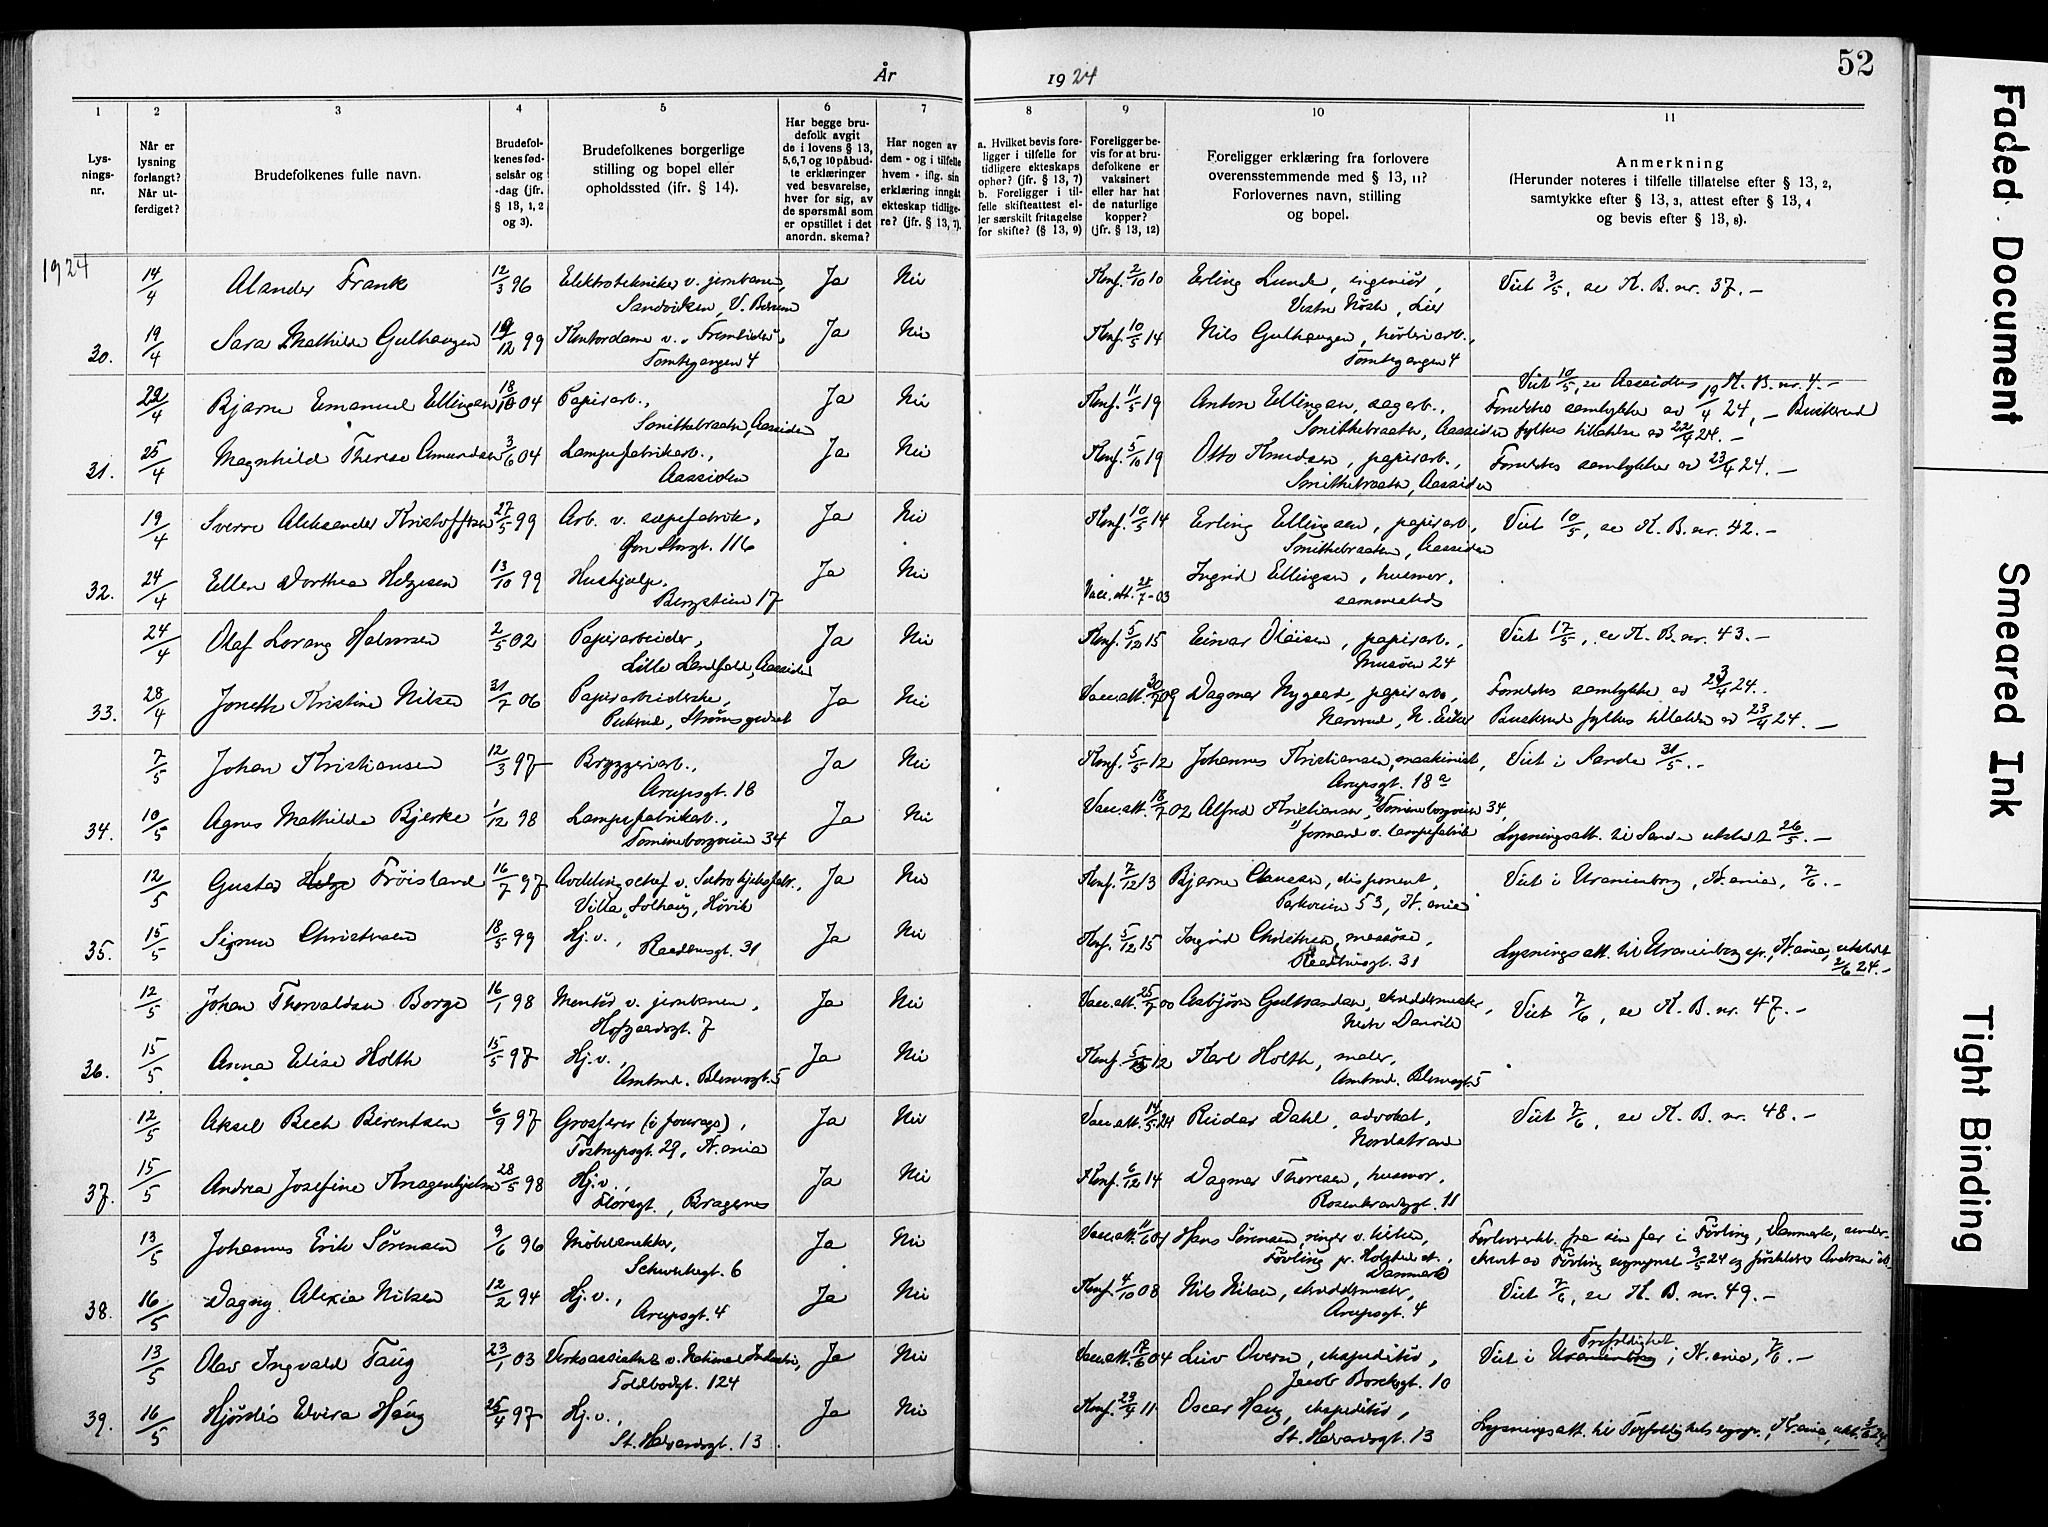 År 1924
52
1 2 3 4 5 6 7 8 9 10 11
Lys-
nings-
nr.
Når er
lysning
forlangt?
Når ut-
ferdiget?
Brudefolkenes fulle navn.
Brudefol-
kenes fød-
selsår og
-dag (jfr.
§ 13, 1, 2
og 3).
Brudefolkenes borgerlige
stilling og bopel eller
opholdssted (ifr. § 14).
Har begge bru-
defolk avgit
de i lovens § 13,
5, 6, 7 og 10 påbud-
te erklæringer
ved besvarelse,
hver for sig, av
de spørsmål som
er opstillet i det
anordn. skema?
Har nogen av
dem - og i tilfelle
hvem - iflg. sin
erklæring inngåt
ekteskap tidlige-
re? (jfr. § 13, 7).
a. Hvilket bevis fore-
ligger i tilfelle for
tidligere ekteskaps
ophør? (jfr. § 13, 7)
b. Foreligger i til-
felle skifteattest el-
ler særskilt fritagelse
for skifte? (§ 13, 9)
Foreligger be-
vis for at bru-
defolkene er
vaksinert
eller har hat
de naturlige
kopper?
(jfr. § 13, 12)
Foreligger erklæring fra forlovere
overensstemmende med § 13, 11?
Forlovernes navn, stilling
og bopel.
Anmerkning
(Herunder noteres i tilfelle tillatelse efter § 13, 2,
samtykke efter § 13, 3, attest efter § 13, 4
og bevis efter § 13, 8).
1924
14/4 Alander Frank 12/3 96 Elektrotekniker v. jernbanen, Ja Nei Konf. 2/10 10 Erling Lunde, ingeniør, Viet 3/5, se K. B. nr. 37. -
Sandviken, V. Bærum Vestre Nøste, Lier
30. 19/4 Sara Mathilde Gulhaugen 19/12 99 Kontordame v. "Fremtiden", Ja Nei Konf. 10/5 14 Nils Gulhaugen, høvleriarb.,
Tomtegangen 4 Tomtegangen 4
Viet 10/5, se Aassidens K. B. nr. 4. -
22/4 Bjarne Emanuel Ellingsen 18/10 04 Papirarb., Ja Nei Konf. 11/5 19 Anton Ellingsen, sagarb., Foreldres samtykke av 19/4 24, - Buskerud
Smithebraaten, Aassiden Smithebraaten, Aassiden fylkes tillatelse av 22/4 24. -
31. 25/4 Magnhild Therese Amundsen 3/6 04 Lampefabrikarb., Ja Nei Konf. 5/10 19 Otto Knudsen, papirarb., Foreldres samtykke av 23/4 24. -
Aassiden Smithebraaten, Aassiden
19/4 Sverre Aleksander Kristoffersen 27/5 99 Arb. v. sæpefabrik, Ja Nei Konf. 10/5 14 Erling Ellingsen, papirarb., Viet 10/5, se K. B. nr. 42. -
Øvre Storgt. 116 Smithebraaten, Aassiden
32. 24/4 Ellen Dorthea Helgesen 13/10 99 Hushjælp, Ja Nei Ingrid Ellingsen, husmor,
Bergstien 17 Vacc.att. 7-03 sammesteds
24/4 Olaf Lorang Halvorsen 2/5 02 Papirarbeider, Ja Nei Konf. 5/12 15 Einar Olaisen, papirarb., Viet 17/5, se K. B. nr. 43. -
Lille Landfald, Aassiden Muusøen 24
33. 28/4 Joneth Kristine Nilsen 31/7 06 Papirarbeiderske, Ja Nei Vacc.att. 30/7 09 Dagmar Nygaard, papirarb., Foreldres samtykke av 23/4 24.
Pukerud, Strømsgodset N. Eiker Buskerud fylkes tillatelse av 23/4 24. -
7/5 Johan Kristiansen 12/3 97 Bryggeriarb., Ja Nei Konf. 5/5 12 Johannes Kristiansen, maskinist, Viet i Sande 31/5. -
Arupsgt. 18 Arupsgt. 18 a
34. 10/5 Agnes Mathilde Bjerke 1/12 98 Lampefabrikarb., Ja Nei Vacc.att. 18/7 02 Alfred Kristiansen, Tomineborgveien 34,
Tomineborgveien 34 formand v. lampefabrik Lysningsatt. til Sande utstedt 26/5. -
12/5 Gustav Helge Frøisland 16/7 97 Avdelingschef v. Ja Nei Konf. 7/12 13 Bjarne Clausen, disponent, Viet i Uranienborg, Kr.ania, 7/6. -
Villa "Solhaug", Høvik Parkveien 53, Kr.ania
35. 15/5 Signe Christensen 18/5 99 Hj.v., Ja Nei Konf. 5/12 15 Ingrid Christensen, massøse,
Raadhusgt. 31 Raadhusgt. 31 Lysningsatt. til Uranienborg spr., Kr.ania, utstedt 2/6 24. -
12/5 Johan Thorvaldsen Borge 16/1 98 Montør v. jernbanen, Ja Nei Vacc.att. 25/7 00 Asbjørn Gulbrandsen, skreddermester, Viet 7/6, se K. B. nr. 47. -
Hofgaardsgt. 7 Nedre Danvik
36. 15/5 Anna Elise Holth 15/5 97 Hj.v., Ja Nei Konf. 12 Karl Holth, maler,
Amtmd. Blomsgt. 5 Amtmd. Blomsgt. 5
12/5 Aksel Bech Berentsen 6/9 97 Grosserer (i fourage), Ja Nei Vacc.att. 14/5 24 Reidar Dahl, advokat, Viet 7/6, se K. B. nr. 48. -
Tostrupsgt. 29, Kr.ania Nordstrand
37. 15/5 Andrea Josefine Knagenhjelm 28/5 98 Hj.v., Ja Nei Konf. 6/12 14 Dagmar Thoresen, husmor,
Floresgt., Bragernes Rosenkrantzgt. 11
13/5 Johannes Erik Sørensen 9/6 96 Møbelsnekker, Ja Nei Vacc.att. 11/6 04 Hans Sørensen, ringer v. kirken, Forloverkl. fra sin far i Føvling, Danmark, under-
Schwenkegt. 6 Føvling pr. Holsted st., Danmark skrevet av Føvling sogneprest 9/5 24 og
38. 16/5 Dagny Alexia Nilsen 12/2 94 Hj.v., Ja Nei Konf. 4/10 08 Nils Nilsen, skreddermester, Viet 7/6, se K. B. nr. 49. -
Arupsgt. 4 Arupsgt. 4
13/5 Olav Ingvald Taug 23/1 03 Verksassistent v. National Industri, Ja Nei Vacc.att. 04 Leiv Oversen, ekspeditør, Viet i Uranienborg Trefoldighet, Kr.ania, 7/6. -
Toldbodgt. 124 Jacob Borchsgt. 10
39. 16/5 Hjørdis Elvira Haug 25/4 97 Hj.v., Ja Nei Konf. 23/4 11 Oscar Haug, ekspeditør,
St. Halvardsgt. 13 St. Halvardsgt. 13 Lysningsatt. til Trefoldighets sognepr., Kr.ania, utst. 3/6 24.
Faded Document
Smeared Ink
Tight Binding